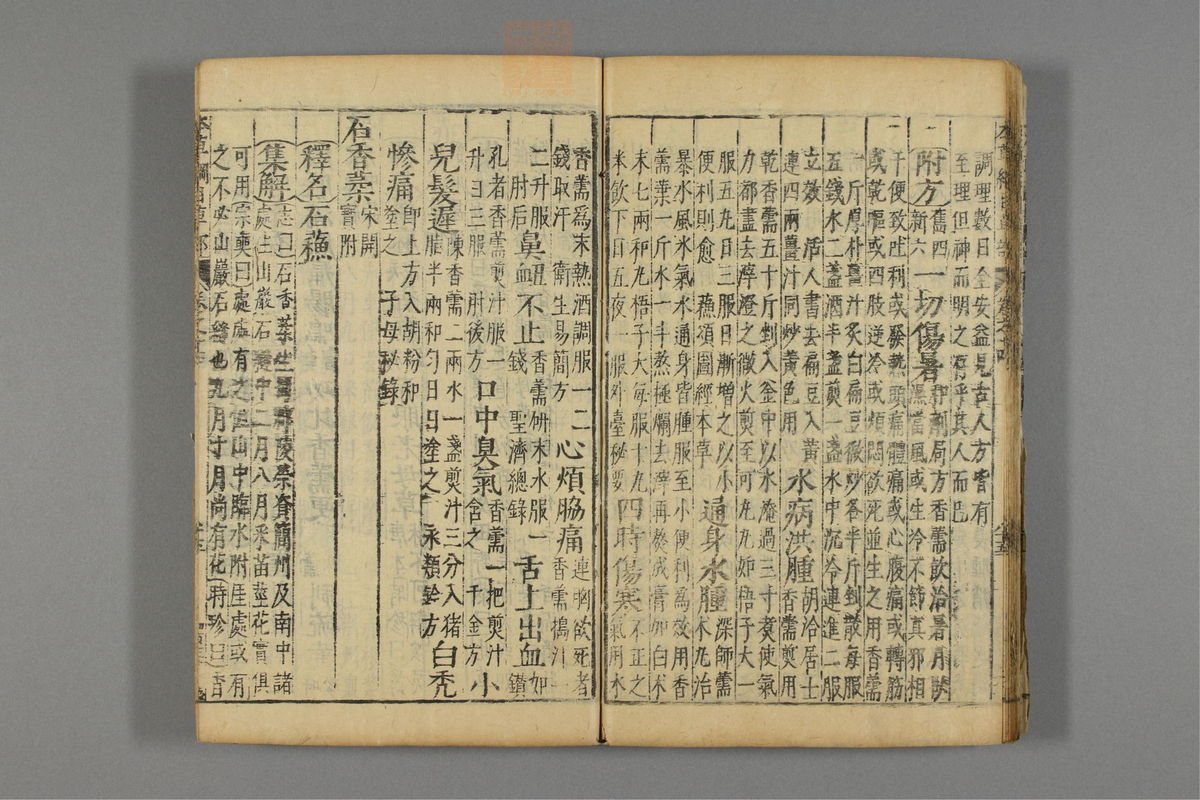 調理數日全安益見古人方皆有
至理但神而明之存乎其人而已
附方 舊四
新六 一切傷暑 和劑局方香薷飲治暑月卧
濕當風或生冷不節真邪相
干便致吐利或發熱頭痛體痛或心腹痛或轉筋
或乾嘔或四肢逆冷或煩悶欲死並主之用香薷
一斤厚朴薑汁炙白扁豆微炒各半斤剉散每服
五錢水二盞酒半盞煎一盞水中沉冷連進二服
立效 活人書去扁豆入黃
連四兩薑汁同炒黃色用 水病洪腫 胡洽居士
香薷煎用
乾香薷五十斤剉入釜中以水淹過三寸煮使氣
力都盡去滓澄之微火煎至可丸丸如梧子大一
服五丸日三服日漸增之以小
便利則愈 蘇頌圖經本草 通身水腫 深師薷
朮丸治
暴水風水氣水通身皆腫服至小便利為效用香
薷葉一斤水一斗熬極爛去滓再熬成膏加白朮
末七兩和丸梧子大每服十丸
米飲下日五夜一服外臺秘要 四時傷寒 不正之
氣用水
香薷為末熱酒調服一二
錢取汗 衛生易簡方 心煩脇痛 連胸欲死者
香薷搗汁一
二升服
肘后 鼻衄不止 香薷研末水服一
錢 聖濟總錄 舌上出血 如
鑽
孔者香薷煎汁服一
升日三服 肘後方 口中臭氣 香薷一把煎汁
含之 千金方 小
兒髮遲 陳香薷二兩水一盞煎汁三分入猪
脂半兩和勻日日塗之 永類鈐方 白禿
慘痛 即上方入胡粉和
塗之 子母秘錄
石香葇 宋開
寶附
釋名 石蘇
集解 志曰石香葇生蜀郡陵榮資簡州及南中諸
處生山巖石縫中二月八月采苗莖花實俱
可用宗奭曰處處有之但山中臨水附崖處或有
之不必山巖石縫也九月十月尚有花時珍曰香